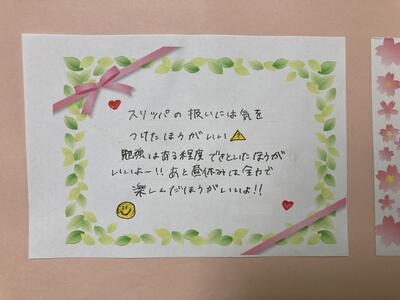 スリッパの扱いには気を
つけたほうがいい⚠
勉強はある程度できといたほうが
いいよ〜!!あと昼休みは全力で
楽しんだほうがいいよ!!